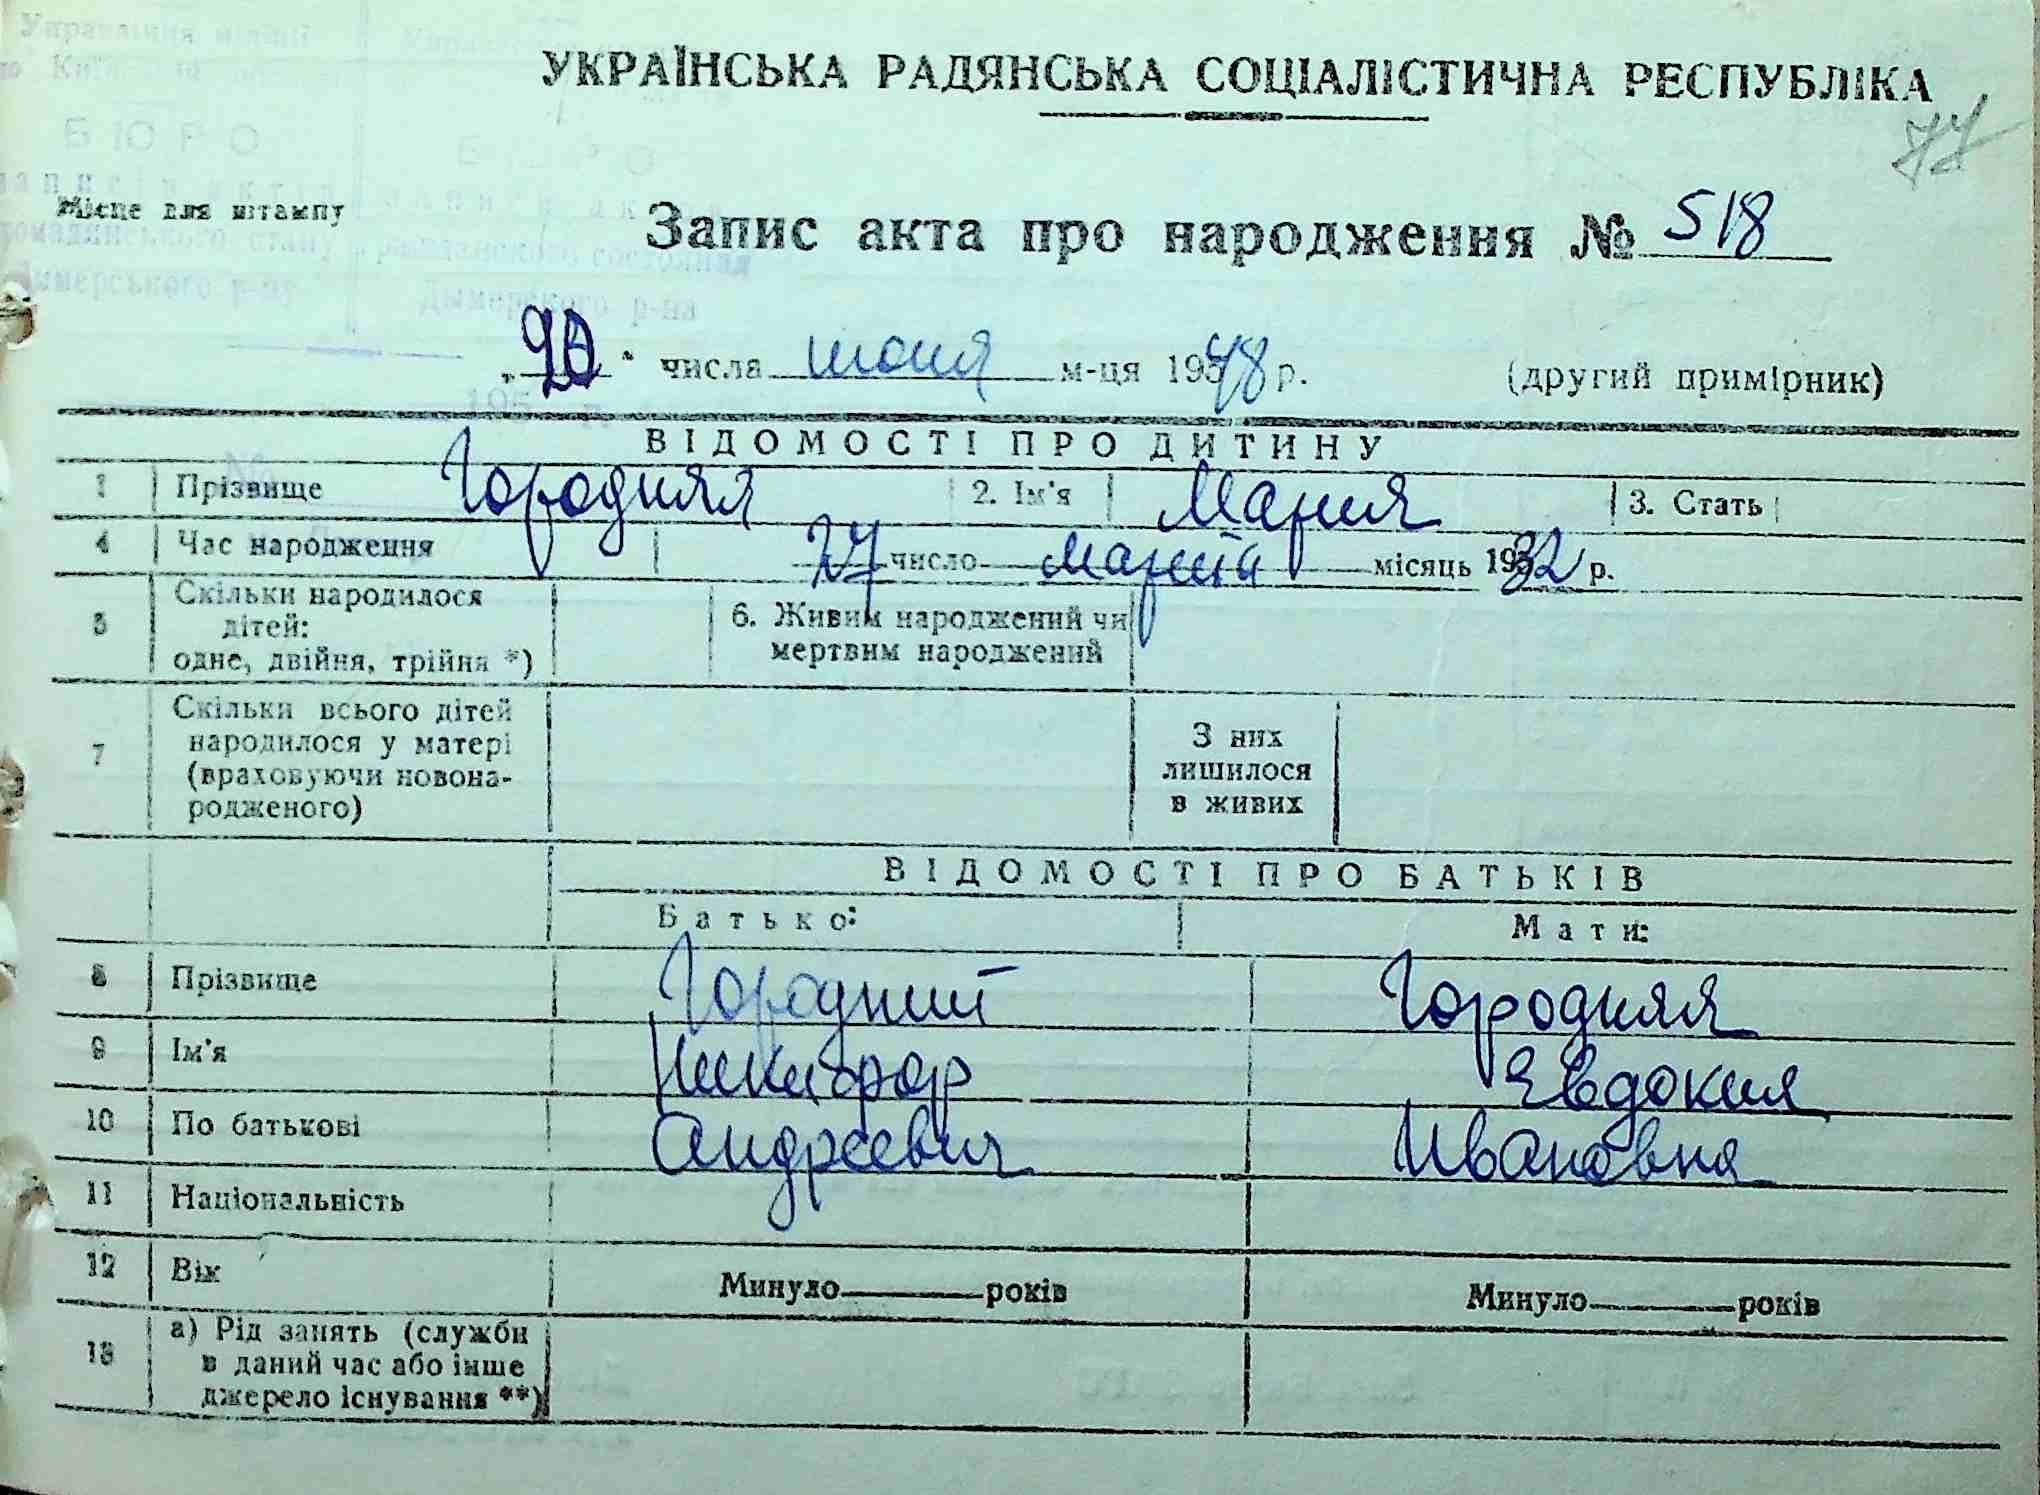 УКРАЇНСЬКА РАДЯНСЬКА СОЦІАЛІСТИЧНА РЕСПУБЛІКА
77
Місце для штампу
Запис акта про народження № 518
„20“ числа июня м-ця 1948 р. (другий примірник)
ВІДОМОСТІ ПРО ДИТИНУ
1 Прізвище Городняя 2. Ім'я Мария 3. Стать
4 Час народження 27 число марта місяць 1932 р.
5 Скільки народилося дітей: одне, двійня, трійня *) 6. Живим народжений чи мертвим народжений
7 Скільки всього дітей народилося у матері (враховуючи новонародженого) З них лишилося в живих
ВІДОМОСТІ ПРО БАТЬКІВ
Батько: Мати:
8 Прізвище Городний Городняя
9 Ім'я Никифор Евдокия
10 По батькові Андреевич Ивановна
11 Національність
12 Вік Минуло років Минуло років
13 а) Рід занять (служби в даний час або інше джерело існування **)